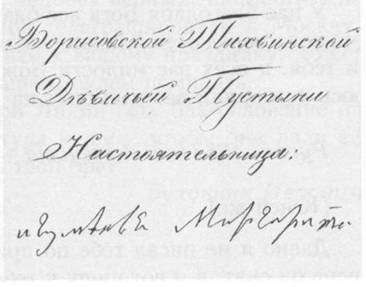 Борисовской Тихвинской
Дѣвичьей Пустыни
Настоятельница:
игуменія Маргарита